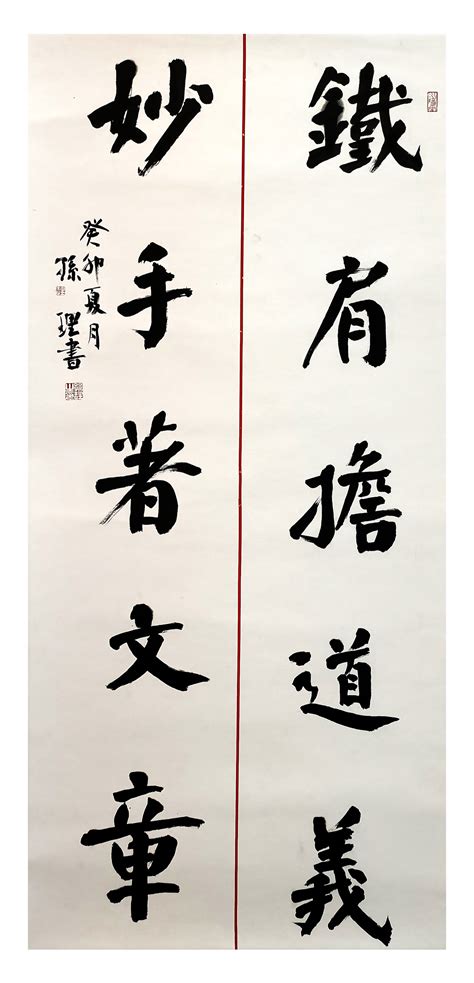 鐵肩擔道義
妙手著文章
癸卯夏月
孫理書